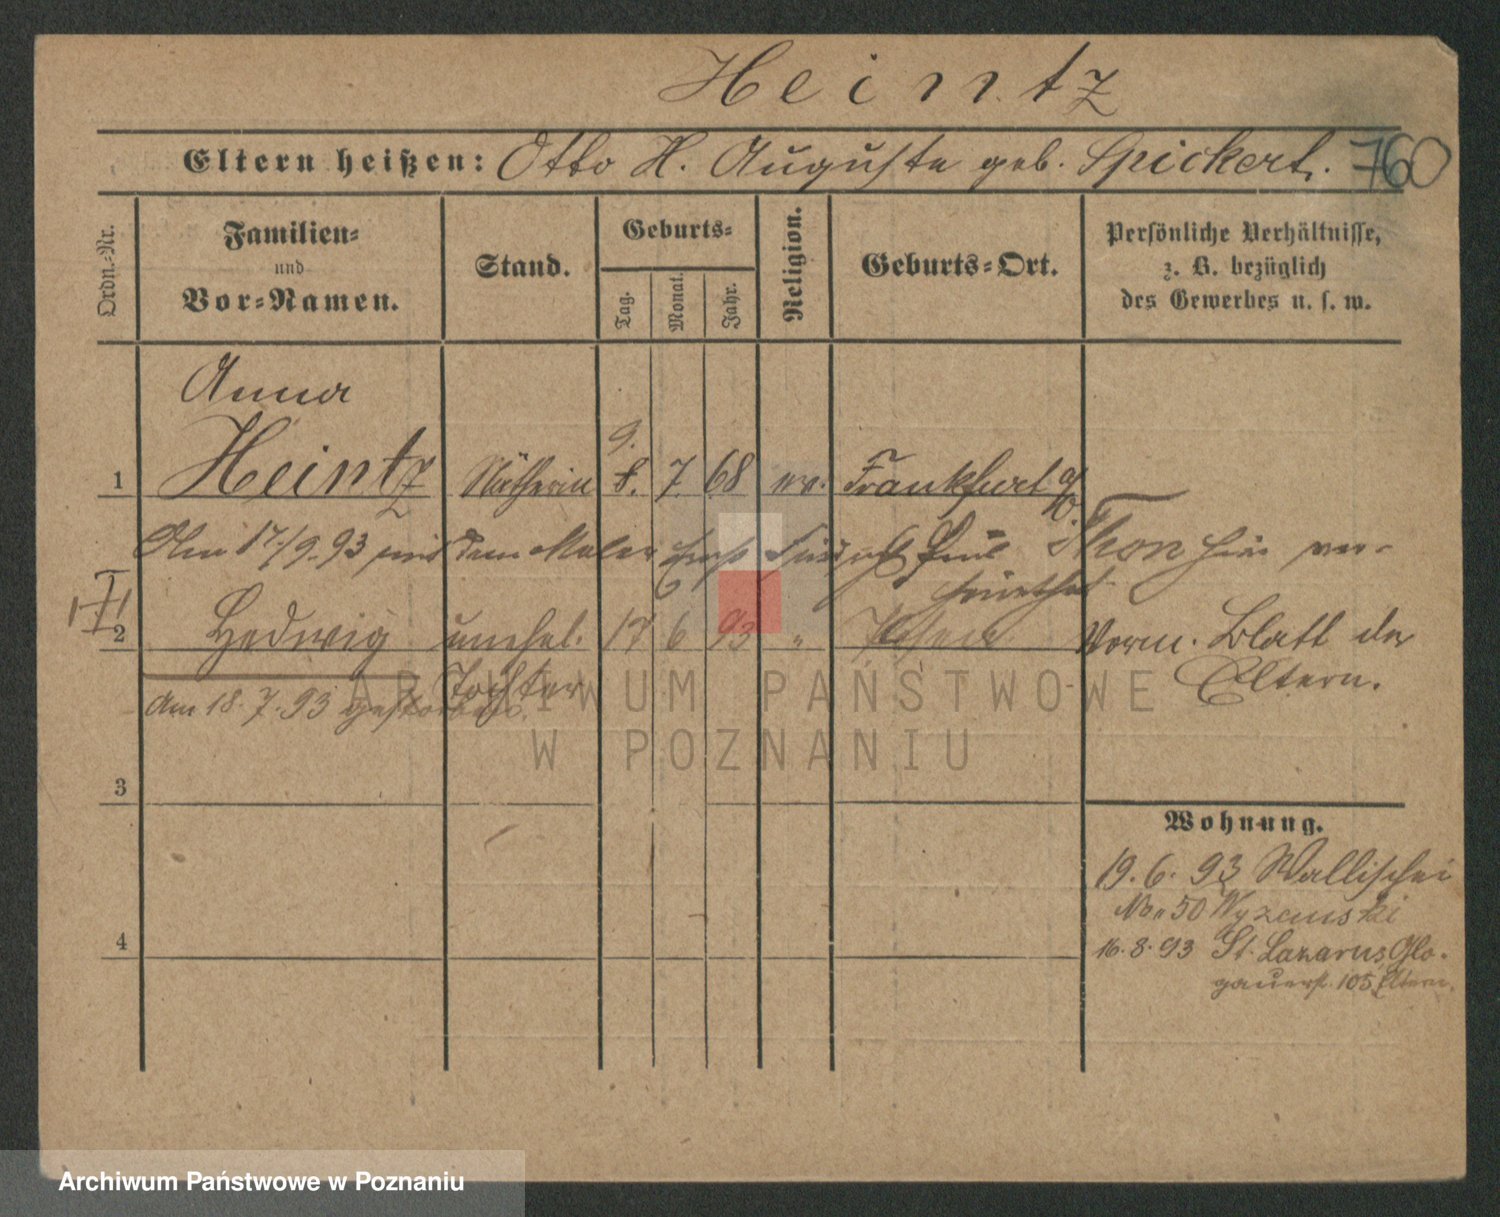 Heintz
Eltern heißen: Otto H. Auguste geb. Spickert. 760
Ordn.-Nr.
Familien-
und
Vor-Namen.
Stand.
Geburts-
Tag.
Monat.
Jahr.
Religion.
Geburts-Ort.
Persönliche Verhältnisse,
z. B. bezüglich
des Gewerbes u. s. w.
Anna
9.
1 Heintz Nätherin 8. 7. 68 ev. Frankfurt a/O.
Am 17./9. 93 mit dem Maler Paul Thon hier ver-
heirathet
I
2 Hedwig unehel. 17 6 93 " Posen Vorm. Blatt der
Tochter Eltern.
Am 18. 7. 93 gestorben.
3
4
Wohnung.
19. 6. 93 Wallischei
No. 50 Wyzanski
16. 8. 93 St. Lazarus, Glo-
gauerst. 105, Eltern.
ARCHIWUM PAŃSTWOWE
W POZNANIU
Archiwum Państwowe w Poznaniu